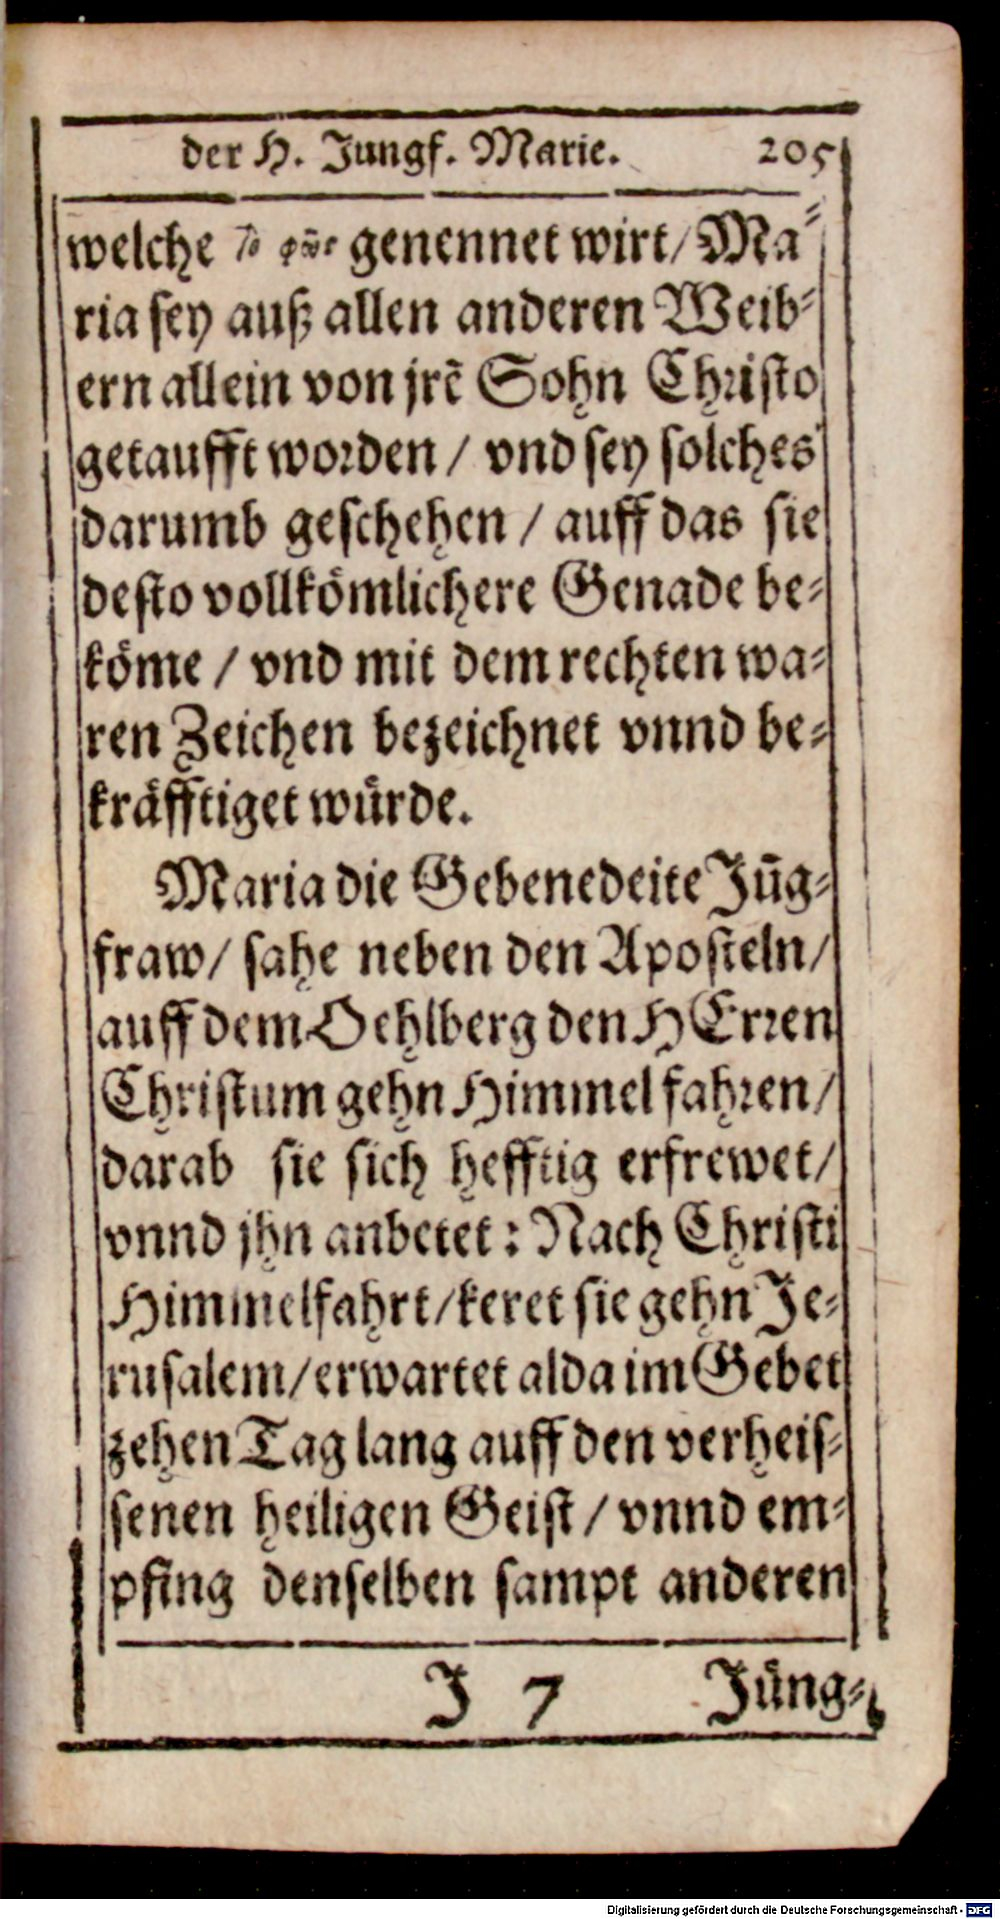 der H. Jungf. Marie. 205
welche genennet wirt/ Ma⸗
ria sey auß allen anderen Weib⸗
ern allein von jrẽ Sohn Christo
getaufft worden / vnd sey solches
darumb geschehen / auff das sie
desto vollkömlichere Genade be⸗
köme / vnd mit dem rechten wa⸗
ren Zeichen bezeichnet vnnd be⸗
kräfftiget würde.
Maria die Gebenedeite Jũg⸗
fraw/ sahe neben den Aposteln/
auff dem Oehlberg den HErren
Christum gehn Himmel fahren/
darab sie sich hefftig erfrewet/
vnnd jhn anbetet: Nach Christi
Himmelfahrt/keret sie gehn Je⸗
rusalem/erwartet alda im Gebet
zehen Tag lang auff den verheis⸗
senen heiligen Geist / vnnd em⸗
pfing denselben sampt anderen
J 7 Jüng⸗
Digitalisierung gefördert durch die Deutsche Forschungsgemeinschaft - DFG